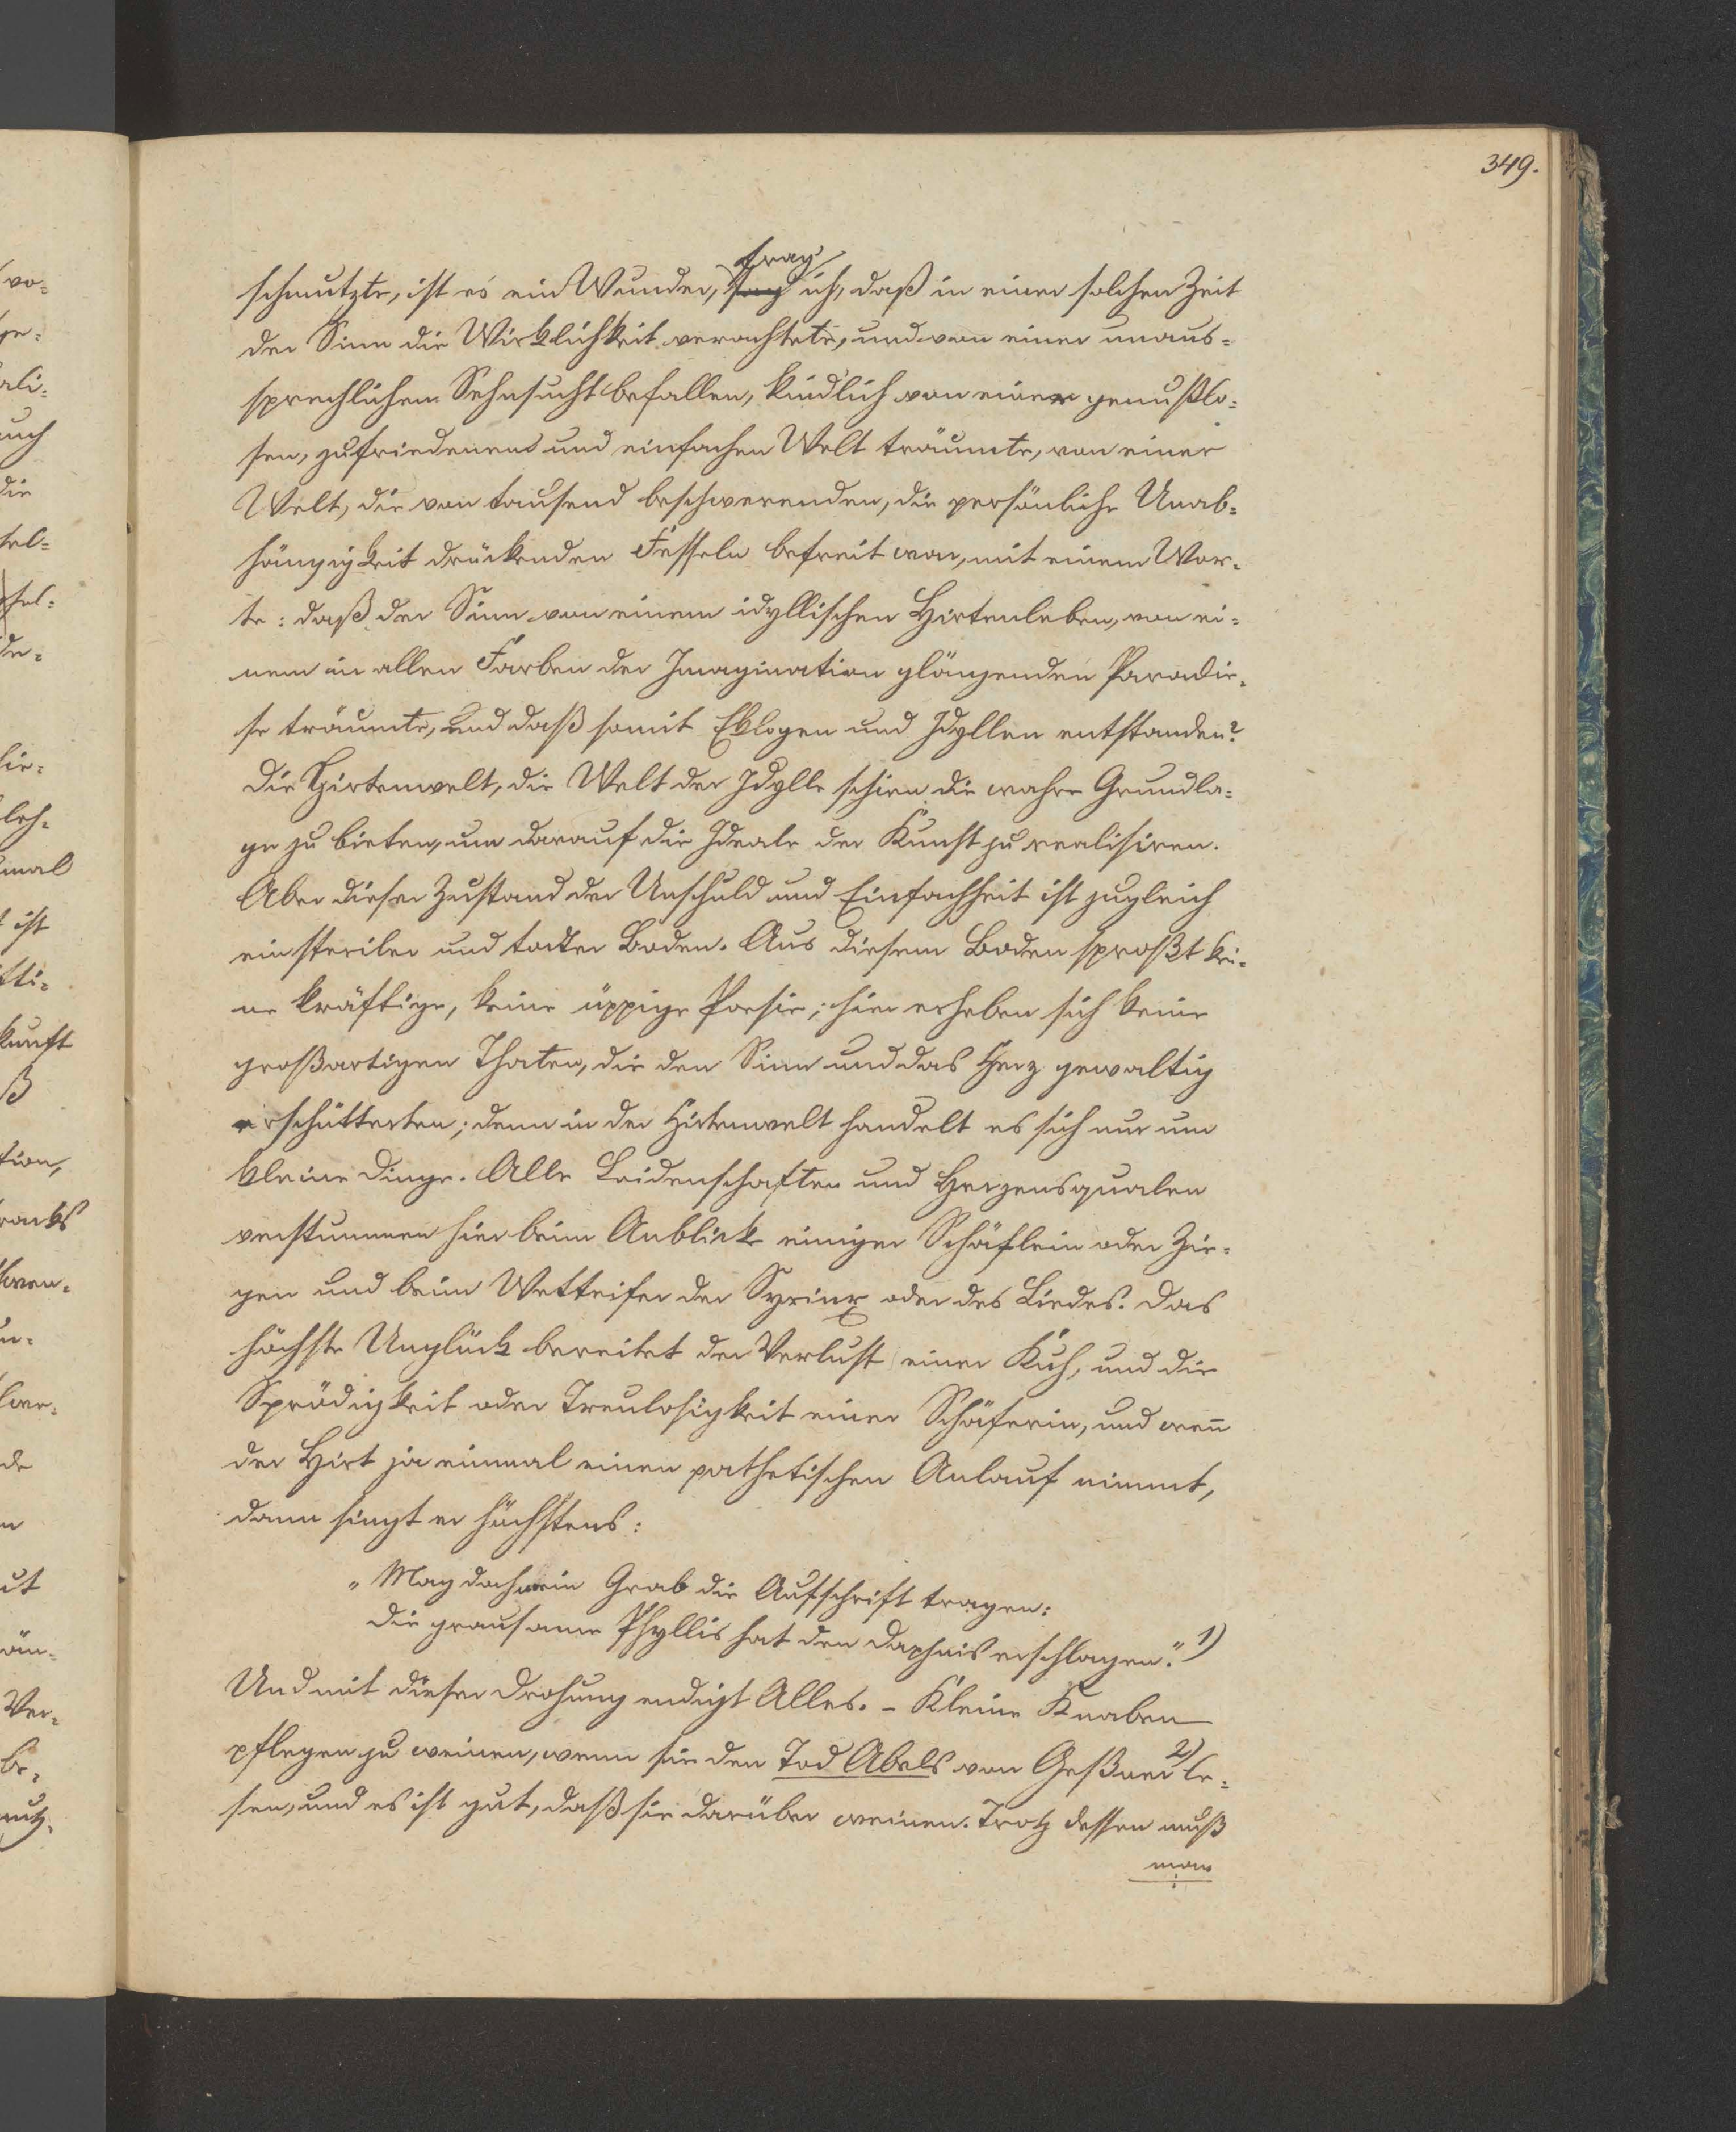 349.
schmutzte, ist es ein Wunder, frag ich, daß in einer solchen Zeit
der Sinn die Wirklichkeit verachtete, und von einer unaus-
sprechlichen Sehnsucht befallen, kindlich von einer genußlo-
sen, zufriedenen und einfachen Welt träumte, von einer
Welt, die von tausend beschwerenden, die persönliche Unab-
hängigkeit drückenden Fesseln befreit war, mit einem Wor-
te: daß der Sinn von einem idyllischen Hirtenleben, von ei-
nem in allen Farben der Imagination glänzenden Paradie-
se träumte, und daß somit Eklogen und Idyllen entstanden?
Die Hirtenwelt, die Welt der Idylle schien die wahre Grundla-
ge zu bieten, um darauf die Ideale der Kunst zu realisiren.
Aber dieser Zustand der Unschuld und Einfachheit ist zugleich
ein steriler und todter Boden. Aus diesem Boden sproßt kei-
ne kräftige, keine üppige Poesie; hier erheben sich keine
großartigen Thaten, die den Sinn und das Herz gewaltig
erschütterten; denn in der Hirtenwelt handelt es sich nur um
kleine Dinge. Alle Leidenschaften und Herzensqualen
verstummen hier beim Anblick einiger Schäflein oder Zie-
gen und beim Wetteifer der Syrinx oder des Liedes. Das
höchste Unglück bereitet der Verlust einer Kuh, und die
Sprödigkeit oder Treulosigkeit einer Schäferin, und wen̄
der Hirt ja einmal einen pathetischen Anlauf nimmt,
dann singt er höchstens:
"Mag doch mein Grab die Aufschrift tragen:
Die grausame Phyllis hat den Daphnis erschlagen." 1)
Und mit dieser Drohung endigt Alles. – Kleine Knaben
pflegen zu weinen, wenn sie den Tod Abels von Geßner 2) le-
sen, und es ist gut, daß sie darüber weinen. Trotz dessen muß
man